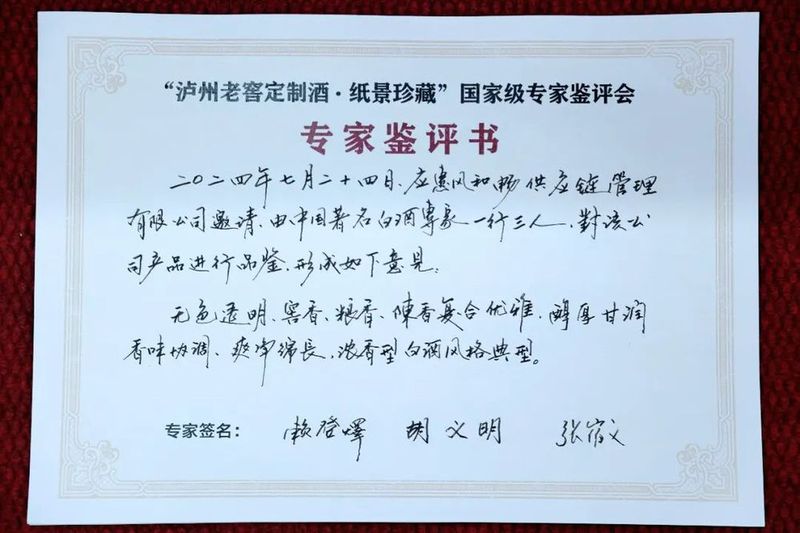 “泸州老窖定制酒·纸景珍藏”国家级专家鉴评会
专家鉴评书
二〇二四年七月二十四日、应惠风和畅供应链管理
有限公司邀请、由中国著名白酒專家一行三人、對该公
司产品进行品鉴、形成如下意见：
无色透明、窖香、粮香、陳香复合优雅、醇厚甘润
香味协调、爽净绵長、浓香型白酒风格典型。
专家签名： 赖登燡 胡义明 张宿义